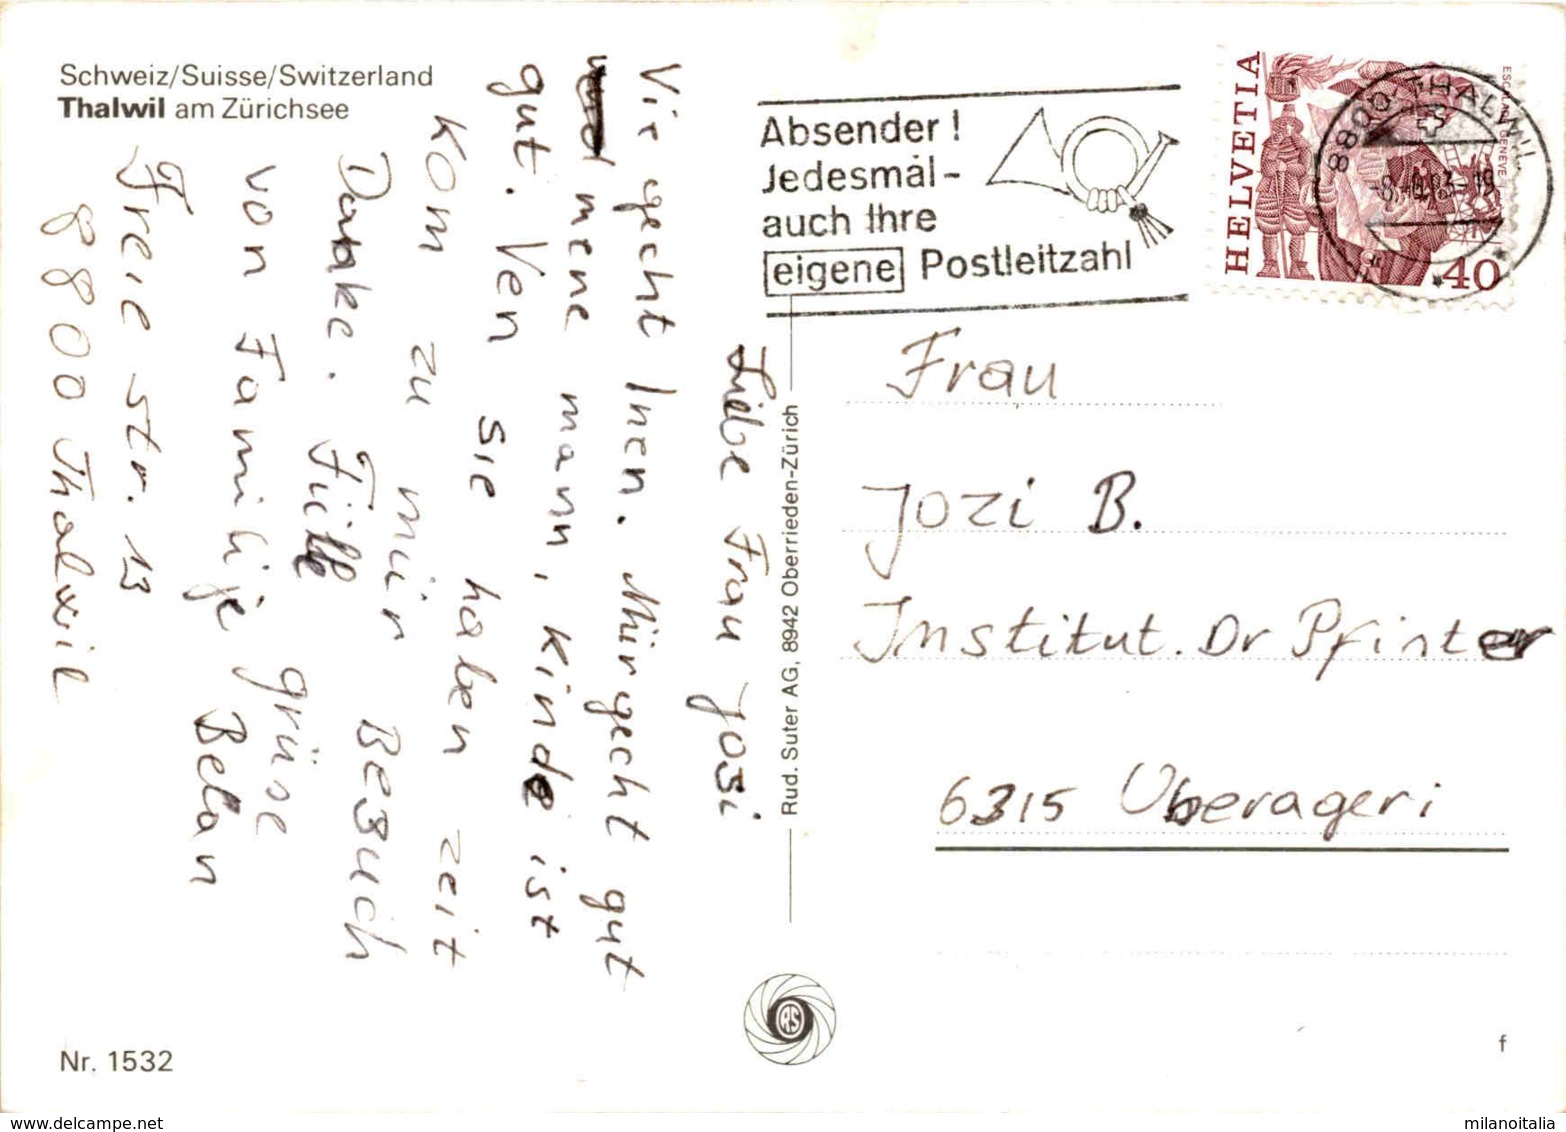 Schweiz/Suisse/Switzerland
Thalwil am Zürichsee
Liebe Frau Josi
Vie gecht Inen. Mürgecht gut
mene mann, Kinde ist
gut. Ven sie haben zeit
Kom zu mür Besuch
Danke. Fülle grüse
von Familije Belan
Freie str. 13
8800 Thalwil
Nr. 1532
Rud. Suter AG, 8942 Oberrieden-Zürich
RS
Absender!
Jedesmal-
auch Ihre
eigene Postleitzahl
HELVETIA
40
8800 THALWIL
Frau
Jozi B.
Institut. Dr Pfinter
6315 Oberageri
f
milanoitalia